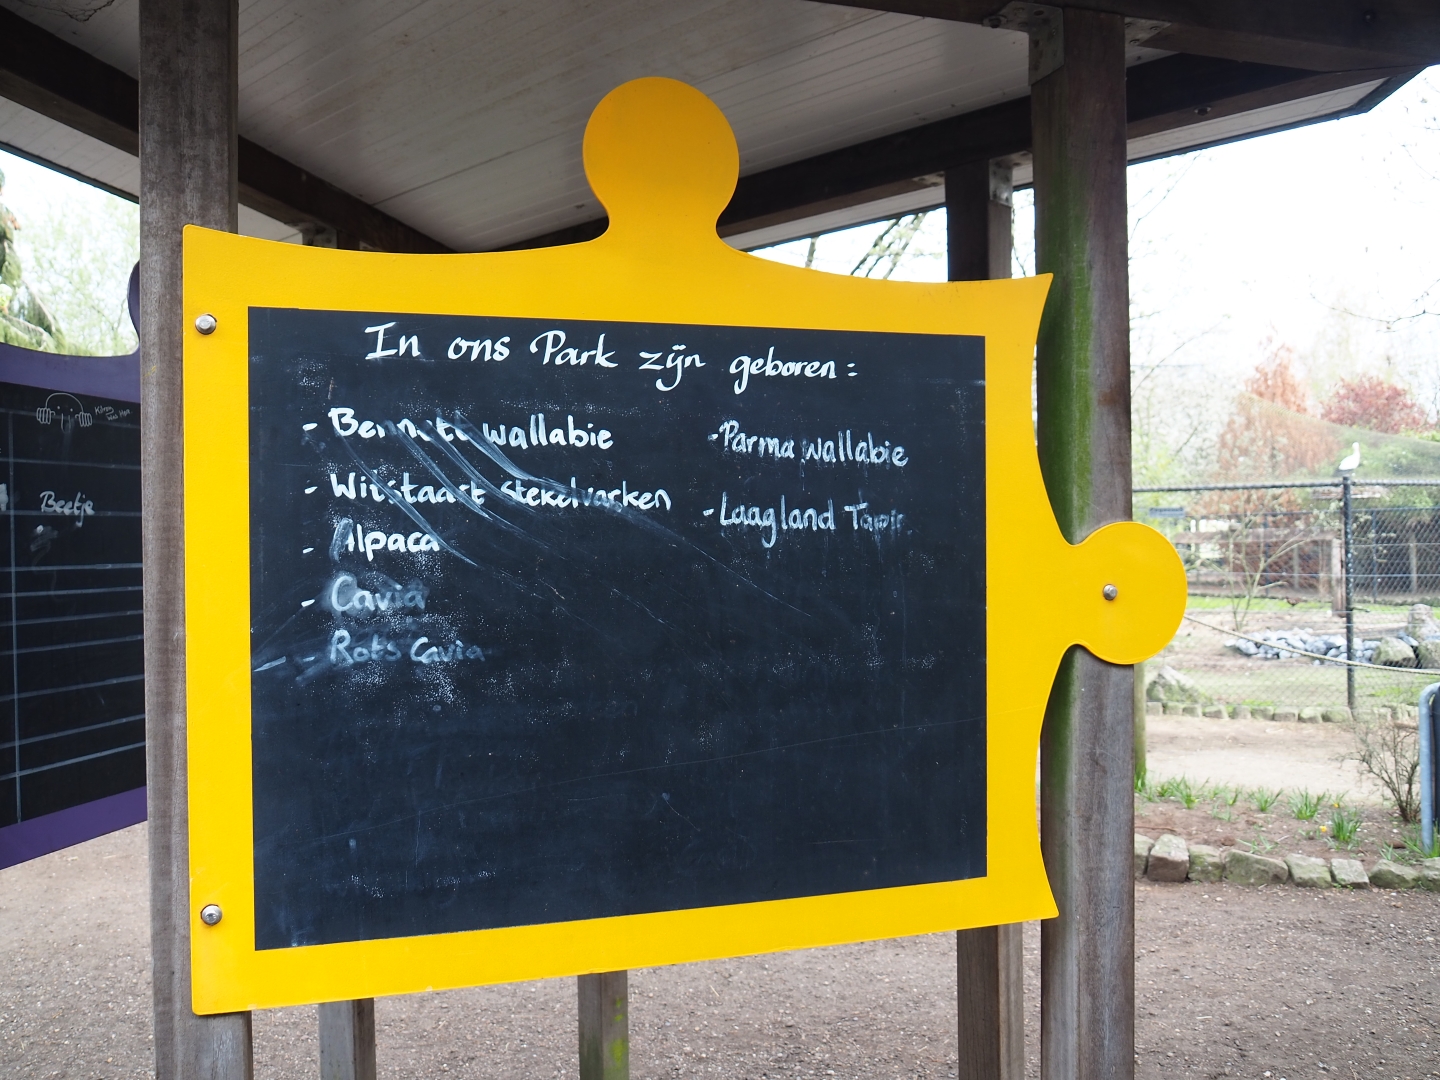 In ons Park zijn geboren:
- Bennett wallabie
- Witstaart stekelvarken
- Alpaca
- Cavia
- Rots Cavia
- Parma wallabie
- Laagland Tapir
Beetje